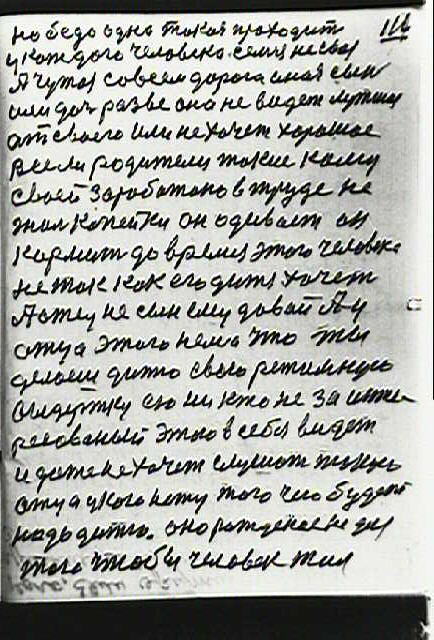 но беда одна такая проходит 111
у каждого человека. семя не своя
А чужая совсем дорога иная сын
или доч разве оно не видет лутшии
ат своего или не хочет хорошае
всели родители такие каму
своей заработано в труде не
знал копейки он одевает он
кормит до время этого человека
не так как его дитя хочет
Потому не сын ему давай А у
отца этого нема что ты
делаеш дитю
выдержку ею ни кто не заинте-
ресованый этого в себя видет
и даже не хочет слушат
отца у кого нету того что будет
надо дитю. оно рожденое не для
того чтобы человек жил